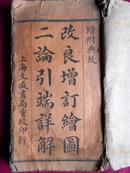 增附典故
改良增訂繪圖
二論引端詳解
上海文盛書局重校印行